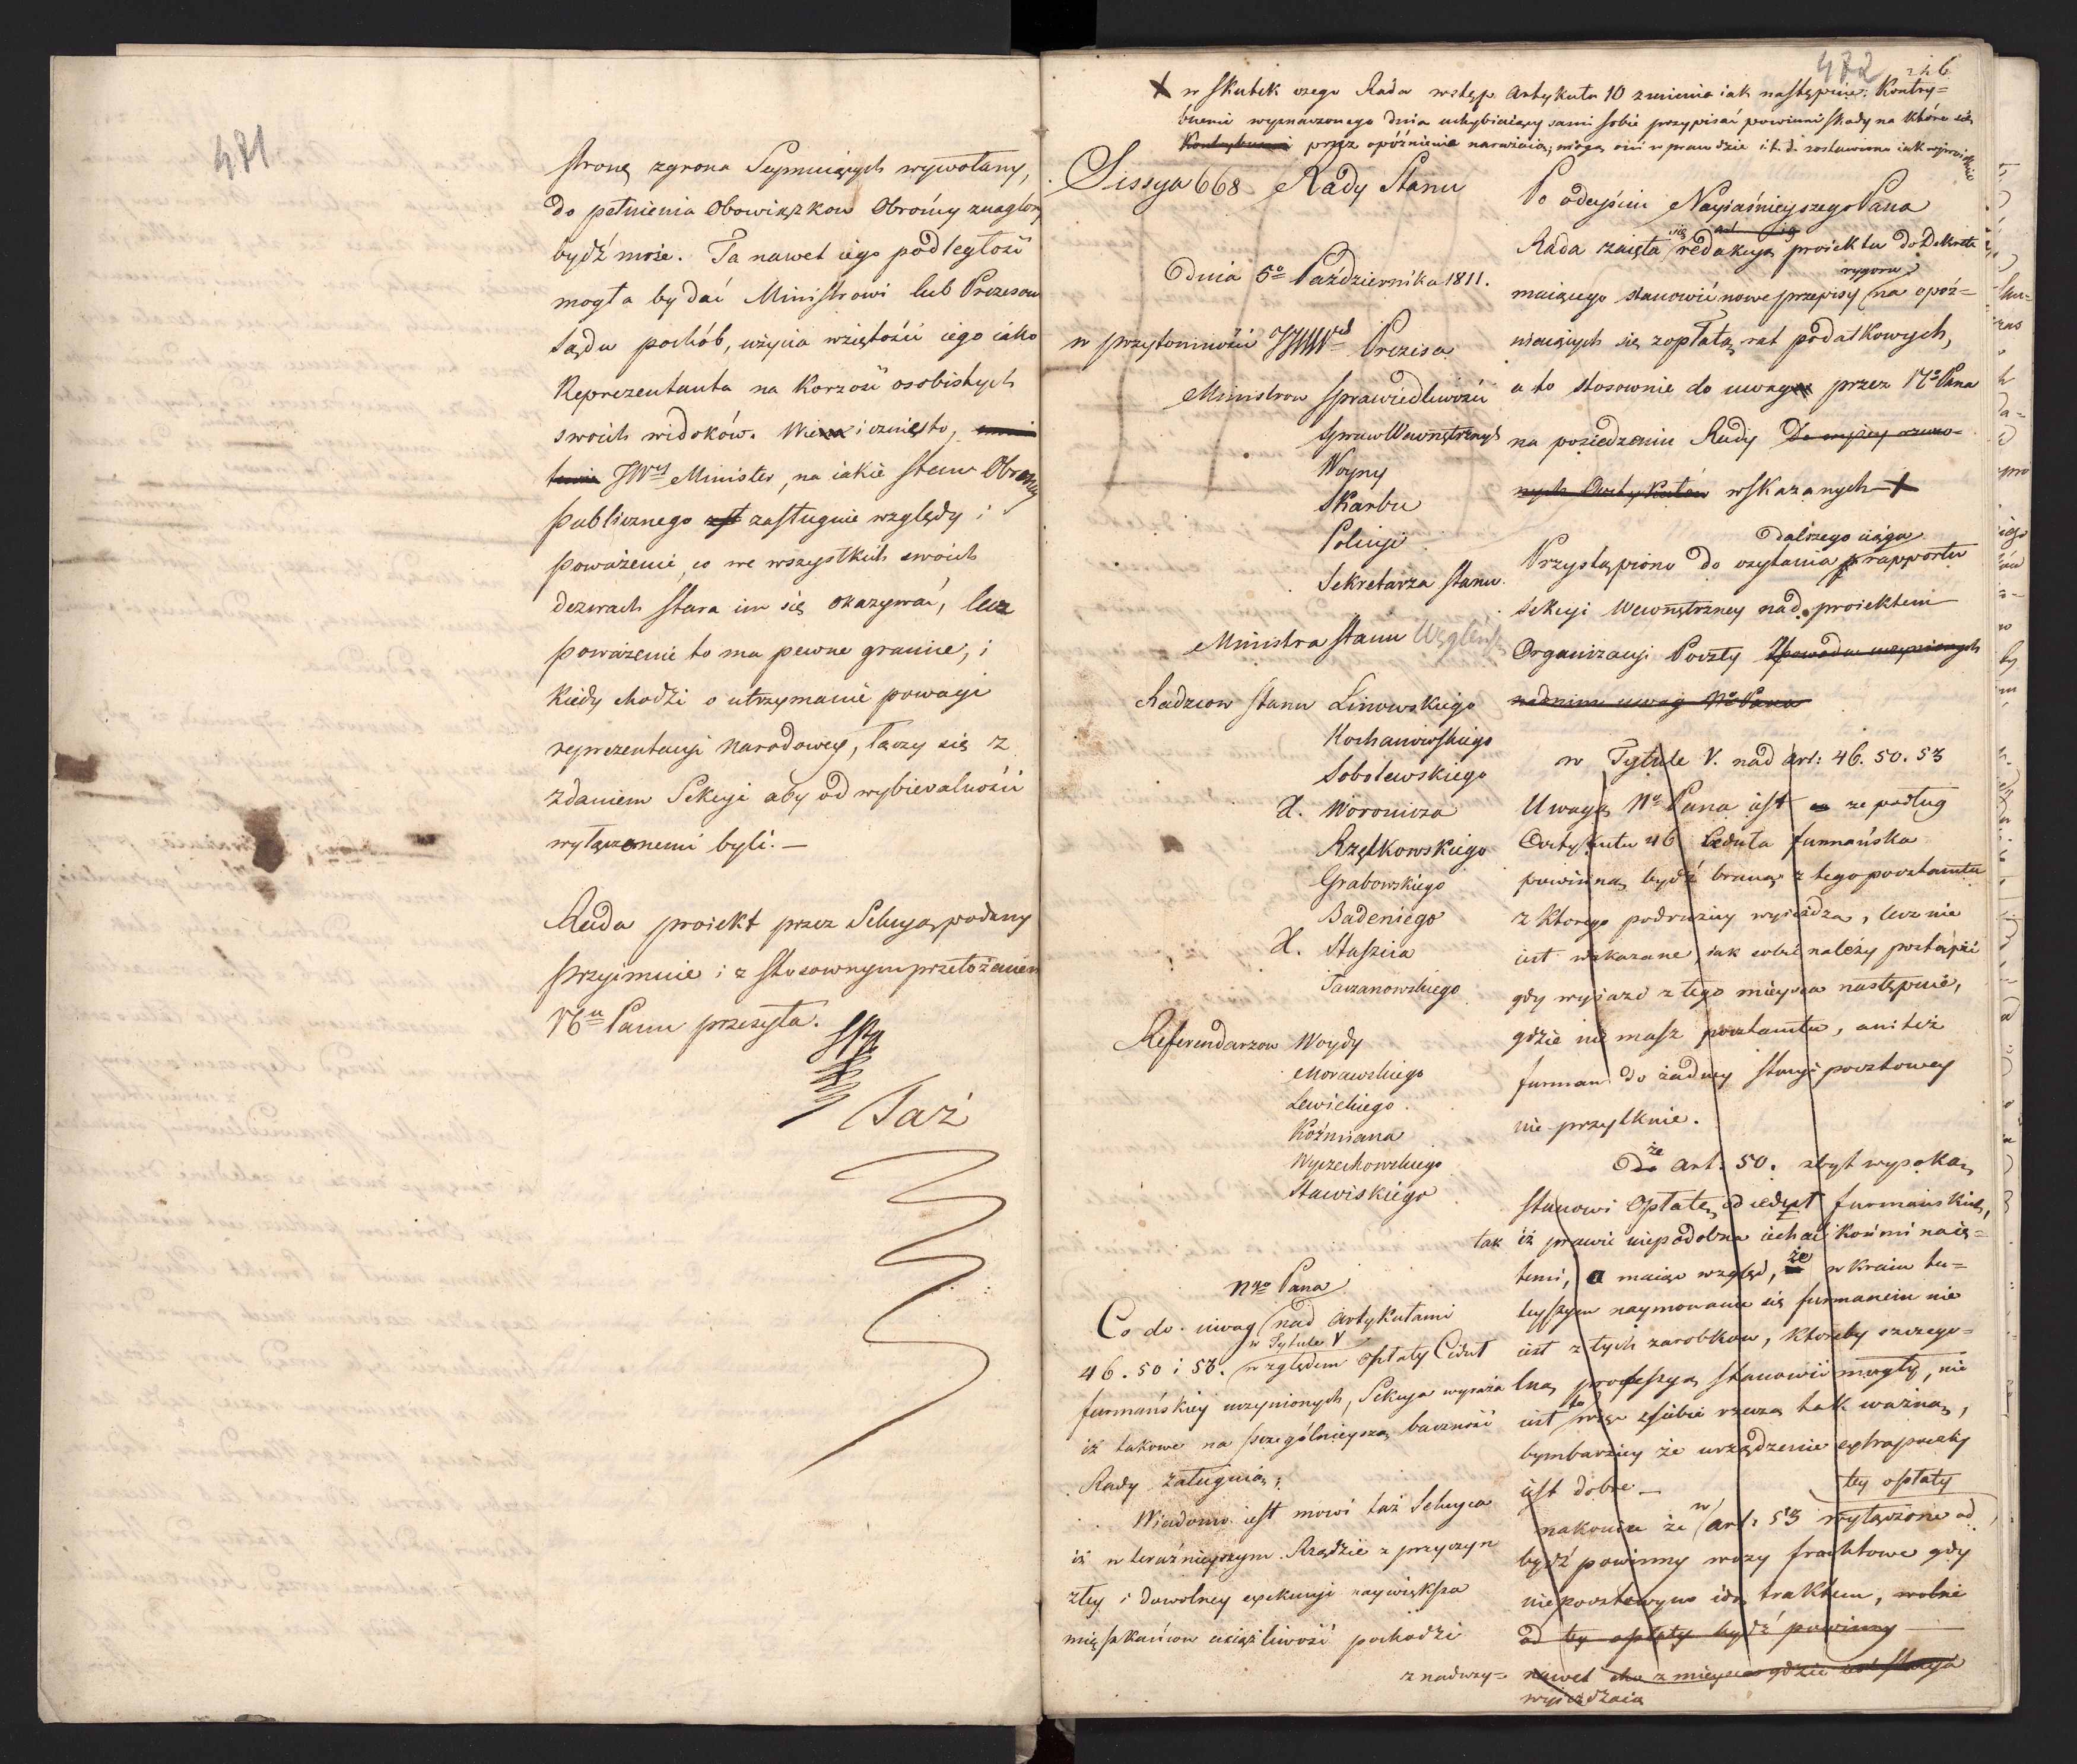 471
stroną zgrona Seymuiących wywołany,
do pełnienia Obowiązkow Obrońcy znaglony
bydź może. Ta nawet iego podległość
mogła by dać Ministrowi lub Prezesowi
Sądu pochób, użycia wziętości iego iako
Reprezentanta na Korzość osobistych
swoich widoków. Wie i oznięto,
JWny Minister, na iakie stan Obrońcy
publicznego zasługuie względy i
poważenie, co we wszystkich swoich
dezwach stara im się okazywać, lecz
poważenie to ma pewne granice, i
Kiedy chodzi o utrzymanie powagi
reprezentacyi Narodowey, łączy się z
zdaniem Sekcyi aby od wybieralności
wyłączonemi byli. —
Rada proiekt przez Sekcyą podany
przyimuie i z stosownym przełożeniem
Nu Panu przesyła.
Taż
472
246
X w skutek czego Rada wstęp Artykułu 10 zmienia iak następuie: Kontry=
buenci wyznaczonego dnia uchybiaiący sami sobie przypisać powinni skody na które się
Kontrybuenci przez opóźnienie narażaią; mogą oni w prawdzie i t. d. zostawiono iak wprzódy
Sessya 668 Rady Stanu
Dnia 5o Października 1811.
w przytomności JJWWch Prezesa
Ministrow Sprawiedliwości
Spraw Wewnętrznych
Woyny
Skarbu
Policyi
Sekretarza Stanu.
Ministra Stanu Węgleńs
Radzcow Stanu Linowskiego
Kochanowskiego
Sobolewskiego
X. Woronicza
Rzętkowskiego
Grabowskiego
Badeniego
X. Staszica
Taczanowskiego
Referendarzow Woydy
Morawskiego
Lewickiego
Koźmiana
Wyczechowskiego
Stawiskiego
Ngo Pana
Co do uwag nad Artykułami
w Tytule V
46. 50 i 53. względem opłaty Cedut
furmańskiey uczynionych, Sekcya wyraża
iż takowe na szczególnieyszą baczność
Rady zasługuią;
Wiadomo iest mowi taż Sekcya
iż w teraźnieyszym Rządzie z przyczyn
złey i dowolney exekucyi naywiększa
mięszkańcow uciążliwość pochodzi
z naduży=
Po odeyściu Nayiaśnieyszego Pana
Rada zaięta się redakcyą proiektu do Dekretu
rygoru
maiącego stanowić nowe przepisy na opóź=
niaiących się zopłatą rat podatkowych,
a to stosownie do uwag przez No Pana
na posiedzeniu Rady Do wyżey rzeczo=
nych Artykułow wskazanych X
dalszego ciągu
Przystąpiono do czytania rapportu
Sekcyi Wewnętrzney nad proiektem
Organizacyi Poczty Zpowodu uczynionych
nadnim uwag No Pana
w Tytule V. nad art: 46. 50. 53
Uwagą No Pana iest że podług
Artykułu 46 Ceduła furmańska
powinna bydź braną z tego pocztamtu
z ktorego podrużny wyieżdza, lecz nie
iest wskazane, iak sobie należy postąpić
gdy wyiazd z tego mieysca następuie,
gdzie nie masz pocztamtu, ani też
furman do żadney Stacyi pocztowey
nie przytknie.
że art. 50. zbyt wysoką
stanowi Opłatę od cedut furmańskich,
tak iż prawie niepodobna iechać końmi naię=
temi, a maiąc wzgląd, że w kraiu tu=
teyszym naymowanie się furmanem nie
iest z tych zarobkow, ktoreby szczegó=
lną professyą stanowić mogły, nie
iest to więc z siebie rzeczą tak ważną,
bymbarziey że urządzenie extrapoczty
iest dobre —
tey opłaty
nakoniec że w art: 53 wyłączone od
bydź powinny wozy frachtowe gdy
niepocztowym idą traktem, wolne
od tey opłaty bydź powinny
nawet choć z mieysca gdzie iest Stacya
wyieżdżaią